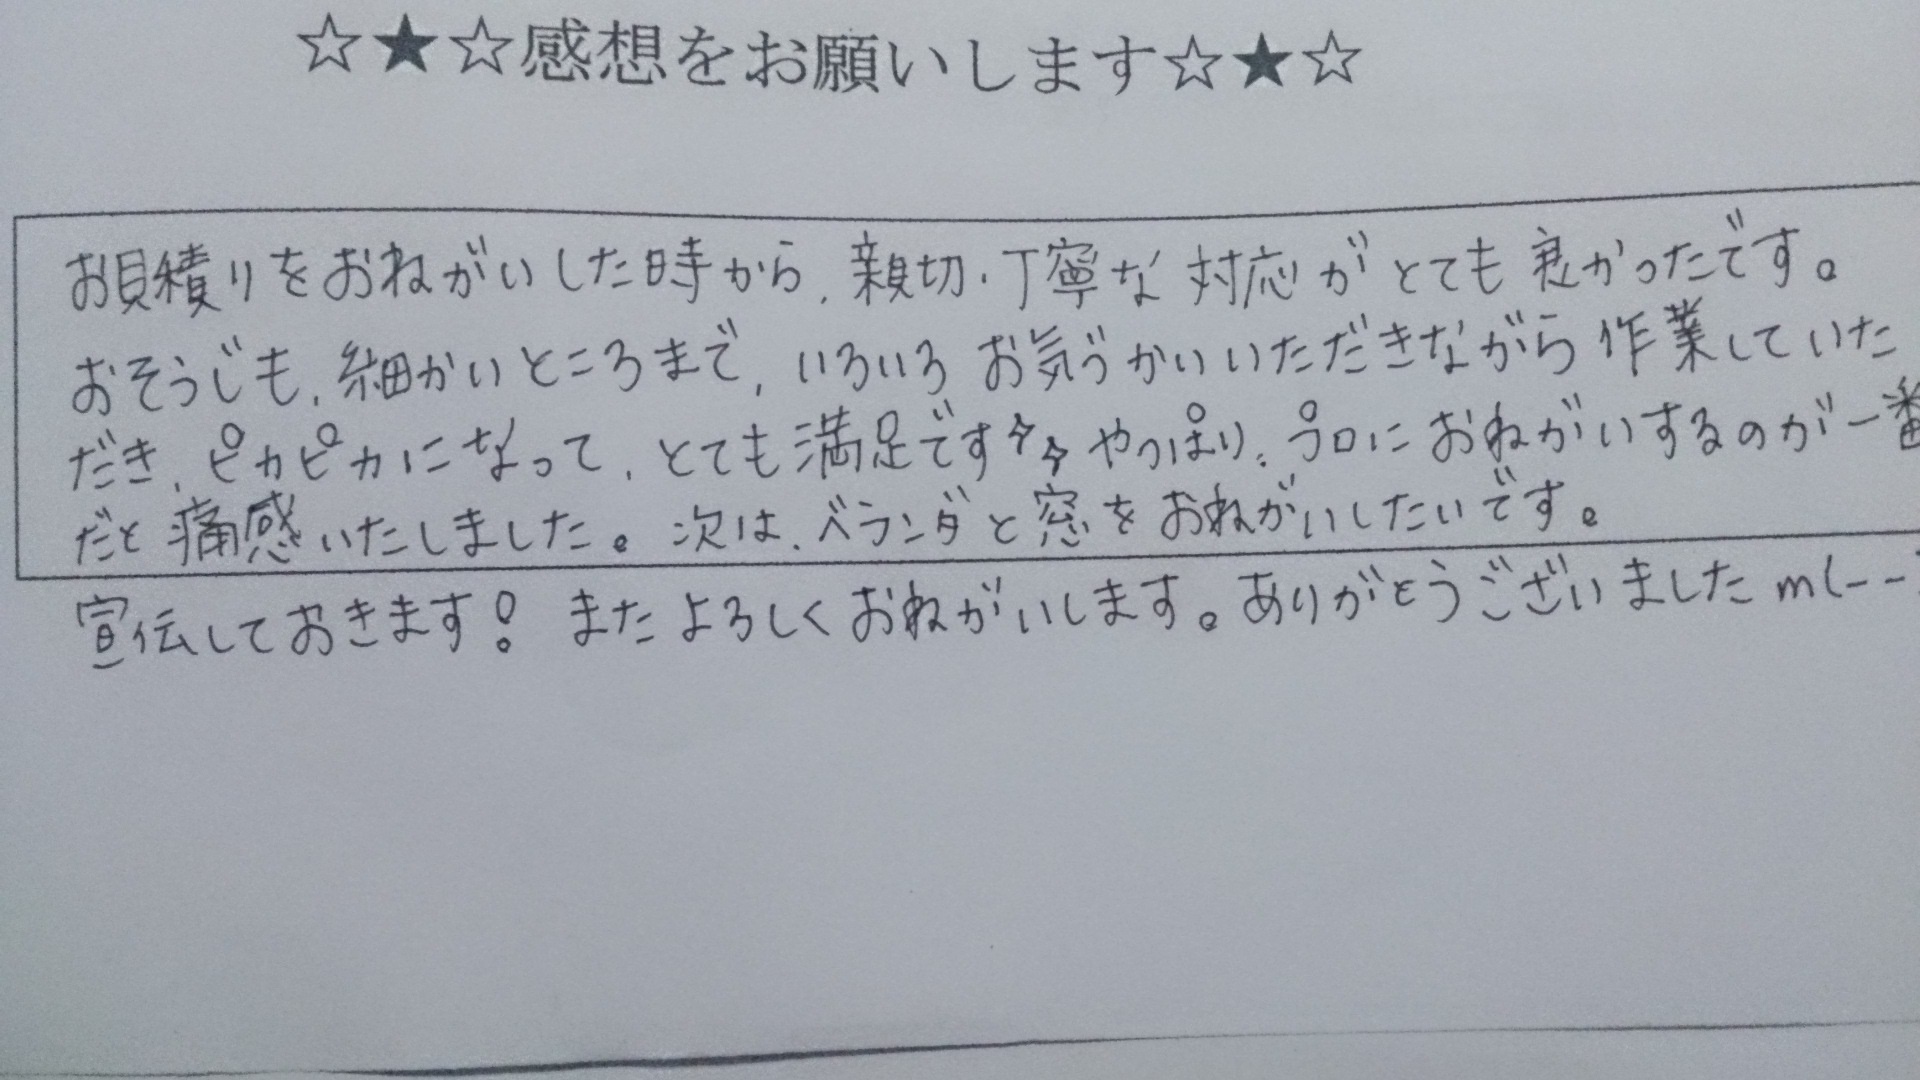 ☆★☆感想をお願いします☆★☆
お見積りをおねがいした時から、親切・丁寧な対応がとても良かったです。
おそうじも、細かいところまで、いろいろお気づかいいただきながら作業していた
だき、ピカピカになって、とても満足です やっぱり、プロにおねがいするのが一番
だと痛感いたしました。次は、ベランダと窓をおねがいしたいです。
宣伝しておきます! またよろしくおねがいします。ありがとうございましたm(--)